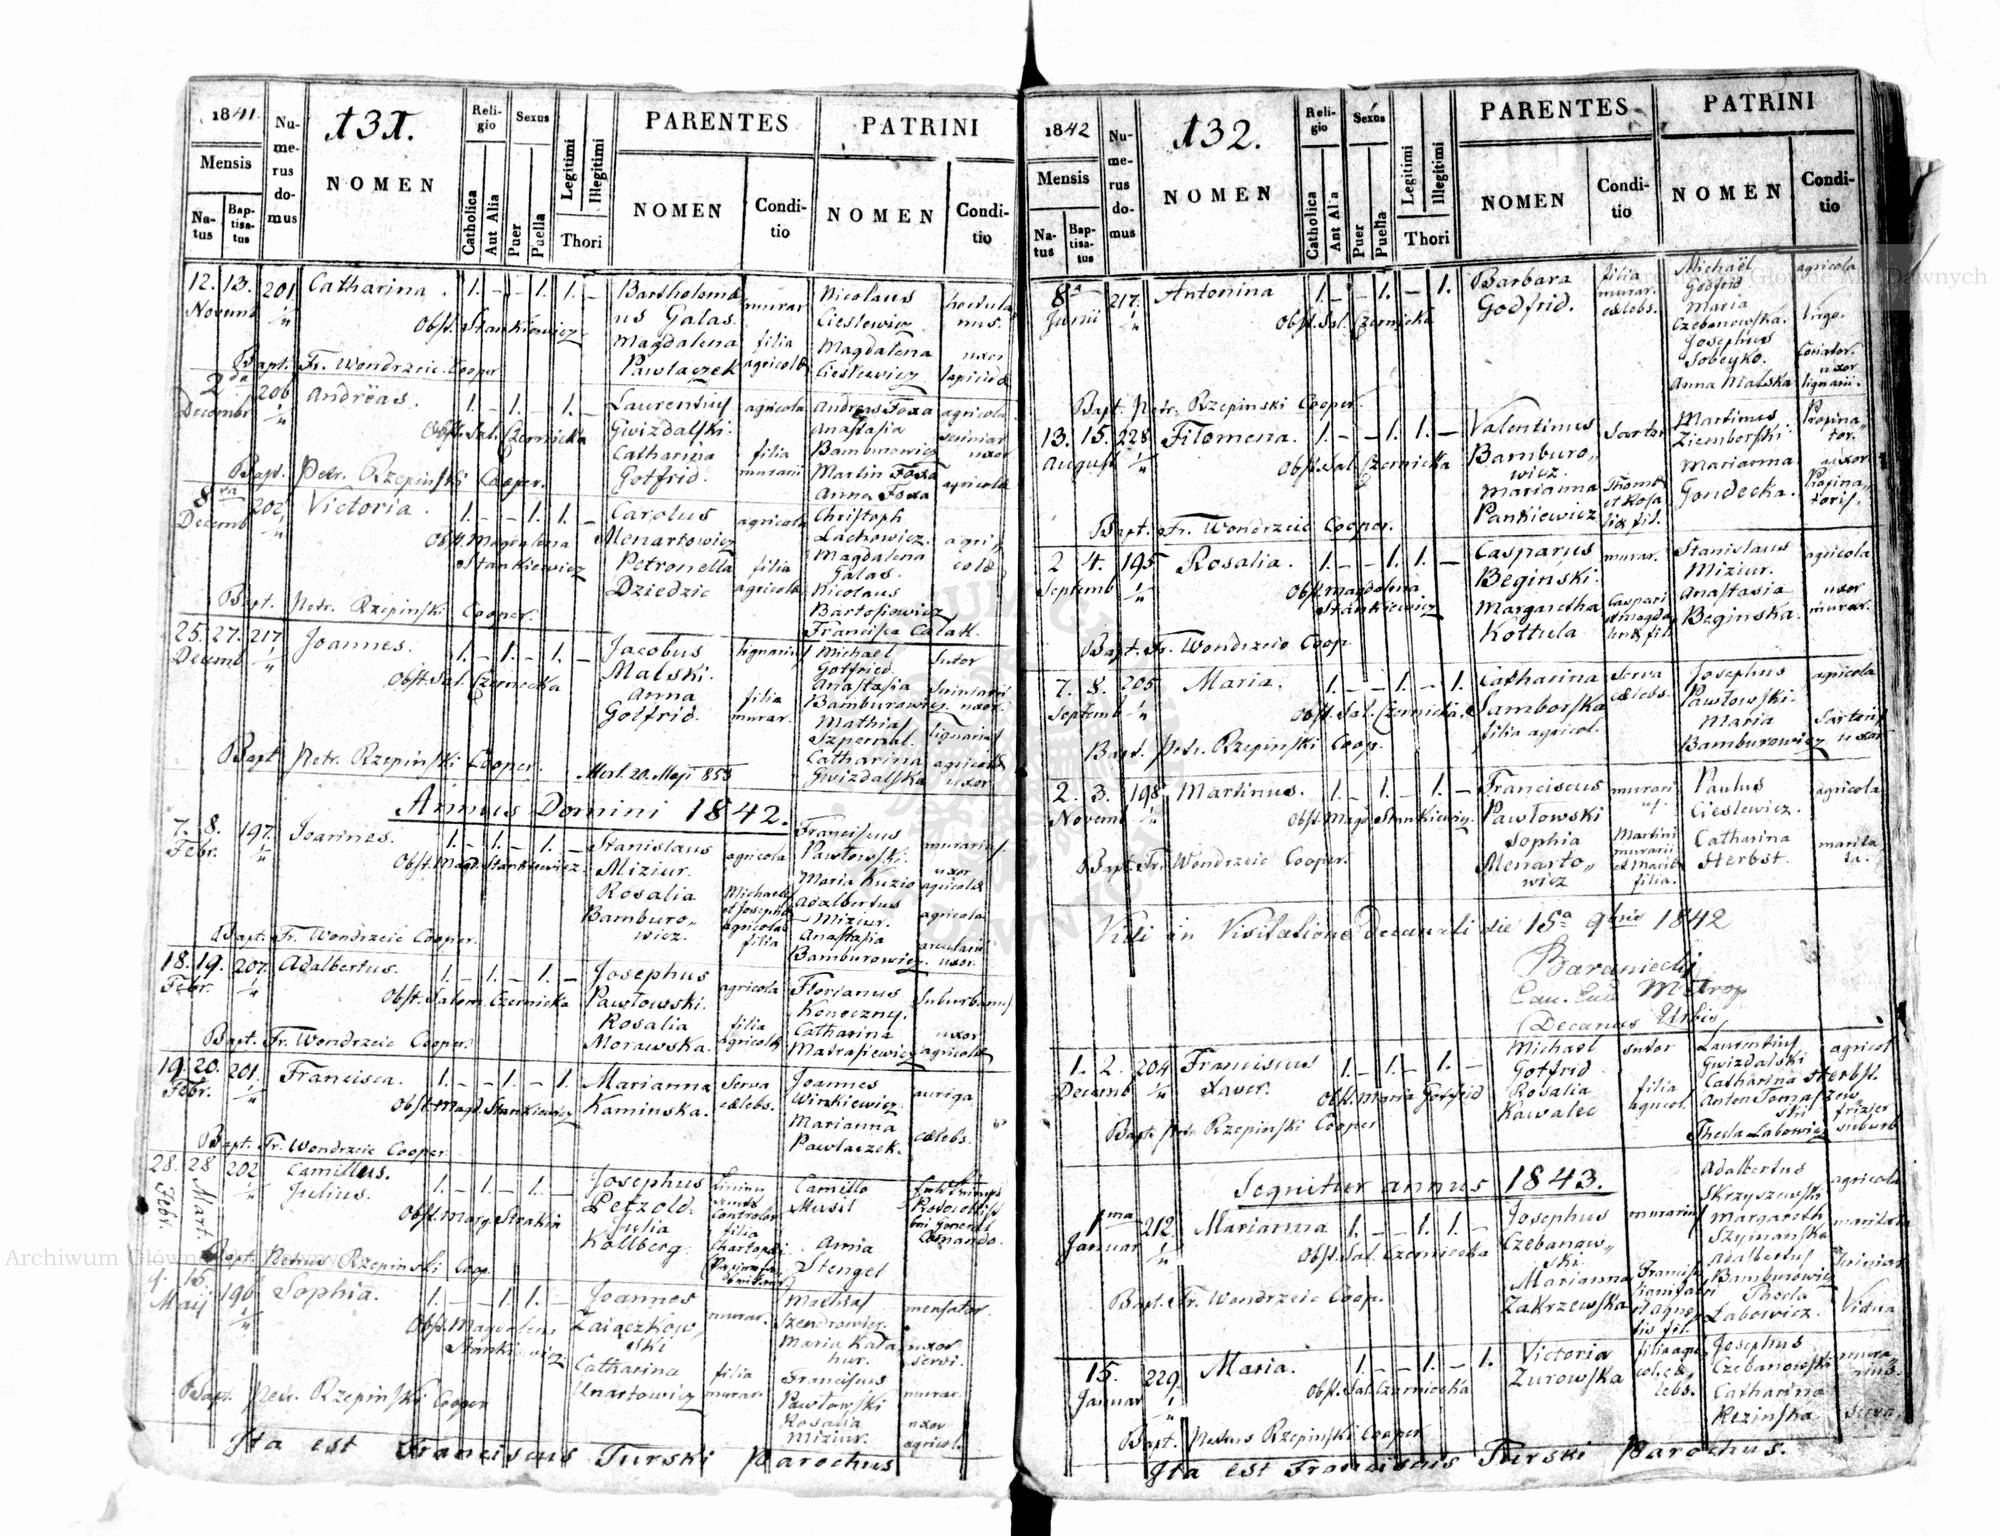 1841
131.
Numerus domus
Religio
Sexus
Legitimi
Illegitimi
PARENTES
PATRINI
Mensis
NOMEN
Natus
Baptisatus
Catholica
Aut Alia
Puer
Puella
Thori
NOMEN
Conditio
NOMEN
Conditio
12. 13. 201 Catharina 1. – – 1. 1. – Bartholomæ murar Nicolaus hortula
us Galas. Cieslewicz nus.
Obst. Stankiewicz
Magdalena filia Magdalena uxor
Pawlaczek agricolæ Cieslewicz
Bapt. Fr. Wondrzeic Cooper
2da 206 Andreas. 1. – 1. – 1. – Laurentius agricola Andreas Foxa agricola
Decembr Obst. Sal. Czernicka Gwizdalski. Anastasia
Catharina filia Bamburowicz uxor
Gotfrid. murarii Martin Foxa agricola
Bapt. Petr. Rzepinski Cooper. Anna Foxa
8va 202 Victoria. 1. – – 1. 1. – Carolus agricola Christoph
Decemb Obst. Magdalena Menartowicz Lachowicz. agri„
Stankiewicz Petronella filia Magdalena colæ
Dziedzic agricolæ Galas.
Nicolaus
Bapt. Petr. Rzepinski Cooper. Bartosiewicz
Francisca Calak.
25. 27. 217 Joannes. 1. – 1. – 1. – Jacobus lignarius Michael Sutor
Decemb Obst. Sal. Czernicka Malski. Gotfried.
Anna filia Anastasia
Gotfrid. murar. Bamburowicz uxor
Mathias lignarius
Szpernal.
Catharina agricolæ
Bapt Petr. Rzepinski Cooper. Mort. 20. Maji 853 Gwizdalska uxor
Annus Domini 1842.
7. 8. 197. Joannes. 1. – 1. – 1. – Stanislaus agricola Franciscus murarius
Febr. Obst. Magd. Stankiewicz Miziur. Pawlowski.
Rosalia Michaelis Maria Kuzio uxor agricolæ
Bamburo„ et Josephæ Adalbertus agricola
wicz. agricolæ Miziur.
filia Anastasia
Bapt. Fr. Wondrzeic Cooper. Bamburowicz. uxor
18. 19. 207. Adalbertus. 1. – 1. – 1. – Josephus agricola Florianus Suburbanus
Febr. Obst. Salom. Czernicka Pawlowski. Koneczny.
Rosalia filia Catharina uxor
Morawska. agricolæ Matrasiewicz agricolæ
Bapt. Fr. Wondrzeic Cooper.
19. 20. 201. Francisca. 1. – – 1. – 1. Marianna serva Joannes auriga.
Febr. Obst. Magd. Stankiewicz Kaminska. cælebs. Winkiewicz
Marianna cælebs.
Pawlaczek.
Bapt. Fr. Wondrzeic Cooper
28. 28 202 Camillus. 1. – 1. – 1. – Josephus Camillo
Febr. Mart. Julius. Petzold. Musil
Obst. Marg. Strakin Julia filia
Kollberg. Anna
Stengel
Bapt. Petrus Rzepinski Coop.
9. 15. 196 Sophia. 1. – – 1. 1. – Joannes murar. Mathias
Maij Obst. Magdalena Zaiączkow„ Szendrowicz.
Stankiewicz ski Maria Kała„ uxor
Catharina filia hur. servi.
Unartowicz murar. Franciscus murar.
Bapt. Petr. Rzepinski Cooper Pawlowski
Rosalia uxor
Miziur. agricol.
Ita est Franciscus Turski Parochus
1842
132.
Numerus domus
Religio
Sexus
Legitimi
Illegitimi
PARENTES
PATRINI
Mensis
NOMEN
Natus
Baptisatus
Catholica
Aut Al'a
Puer
Puella
Thori
NOMEN
Conditio
NOMEN
Conditio
8a 217. Antonina 1. – – 1. – 1. Barbara filia Michaël agricola
Junii Obst. Sal. Czernicka Godfrid. murar. Godfrid
cælebs. Maria
Czebanowska. virgo.
Josephus
Sobeyko.
Anna Malska uxor lignarii.
Bapt. Petr. Rzepinski Cooper.
13. 15. 228 Filomena. 1. – – 1. 1. – Valentinus Sartor Martinus Propina„
August Obst. Sal. Czernicka Bamburo„ Ziemborski. tor.
wicz. Marianna uxor
Marianna Thomæ Gondecka. Propina„
Pankiewicz et Rosa toris.
liæ fil.
Bapt. Fr. Wondrzeic Cooper.
2 4. 195 Rosalia. 1. – – 1. 1. – Casparus murar. Stanislaus agricola
Septemb Obst. Magdalena Begiński. Miziur.
Stankiewicz Margaretha Caspari Anastasia uxor
Kottula et Magda Beginska. murar.
lenæ fil.
Bapt. Fr. Wondrzeic Coop.
7. 8. 205 Maria. 1. – – 1. – 1. Catharina Serva Josephus agricola
Septemb Obst. Sal. Czernicka. Samborska cælebs. Pawlowski.
filia agricol. Maria Sartoris
Bapt. Petr. Rzepinski Coop. Bamburowicz uxor
2. 3. 198 Martinus. 1. – 1. – 1. – Franciscus murari Paulus agricola
Novemb Obst. Magd. Stankiewicz. Pawłowski us. Cieslewicz.
Sophia Martini Catharina marita
Menarto„ murarii Herbst. ta.
wicz et Mariæ
filia.
Bapt. Fr. Wondrzeic Cooper.
Vidi in Visitatione Decanali die 15a 9bris 1842
Baraniecki
Can. Metrop
Decanus Urbis
1. 2. 204 Franciscus 1. – 1. – 1. – Michael sutor Laurentius agricol
Decemb Xaver. Gotfrid Gwizdalski
Obst. Maria Gotfrid Rosalia filia Catharina Herbst.
Kawalec agricol. Anton Tomaszew„ frizier
ski
Thecla Labowicz suburb
Bapt. Petr. Rzepinski Cooper
Sequitur annus 1843.
1ma 212. Marianna 1. – – 1. 1. – Josephus murarius Adalbertus agricola
Januar Obst. Sal. Czernicka Czebanow„ Skrzyszewski
ski. Margareth maritata
Marianna Szymanska
Zakrzewska Adalbertus
et Agne Bamburowicz
tis fil. Thecla Vidua
Łabowicz.
Bapt. Fr. Wondrzeic Coop.
15. 229. Maria. 1. – – 1. – 1. Victoria filia agri Josephus mura„
Januar Obst. Sal. Czernicka Zurowska col. cæ„ Czebanowski rius.
lebs. Catharina
Rezinska serva.
Bapt. Petrus Rzepinski Cooper
Ita est Franciscus Turski Parochus.
Archiwum Główne Akt Dawnych